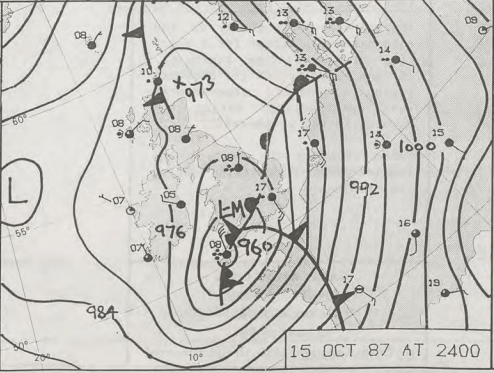 12
13
13
09
08
13
14
10
973
60°
08
08
17
14
1000
15
08
992
L
07
05
17
LM
55°
976
960
16
07
08
984
17
19
50°
20°
10°
15 OCT 87 AT 2400